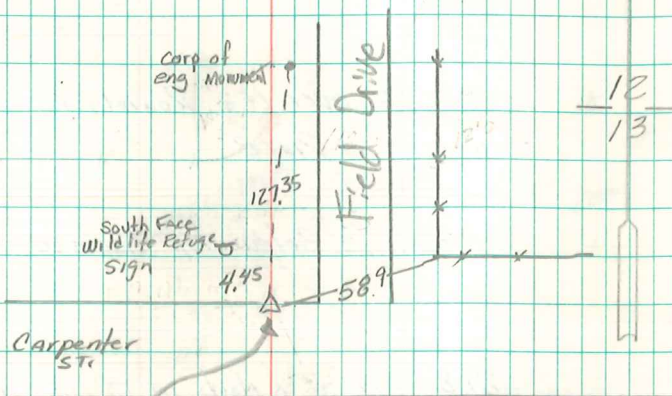 Corp of
eng Monument
Field Drive
12
13
127.35
South Face
Wildlife Refuge
Sign
4.45
58.9
Carpenter
ST.